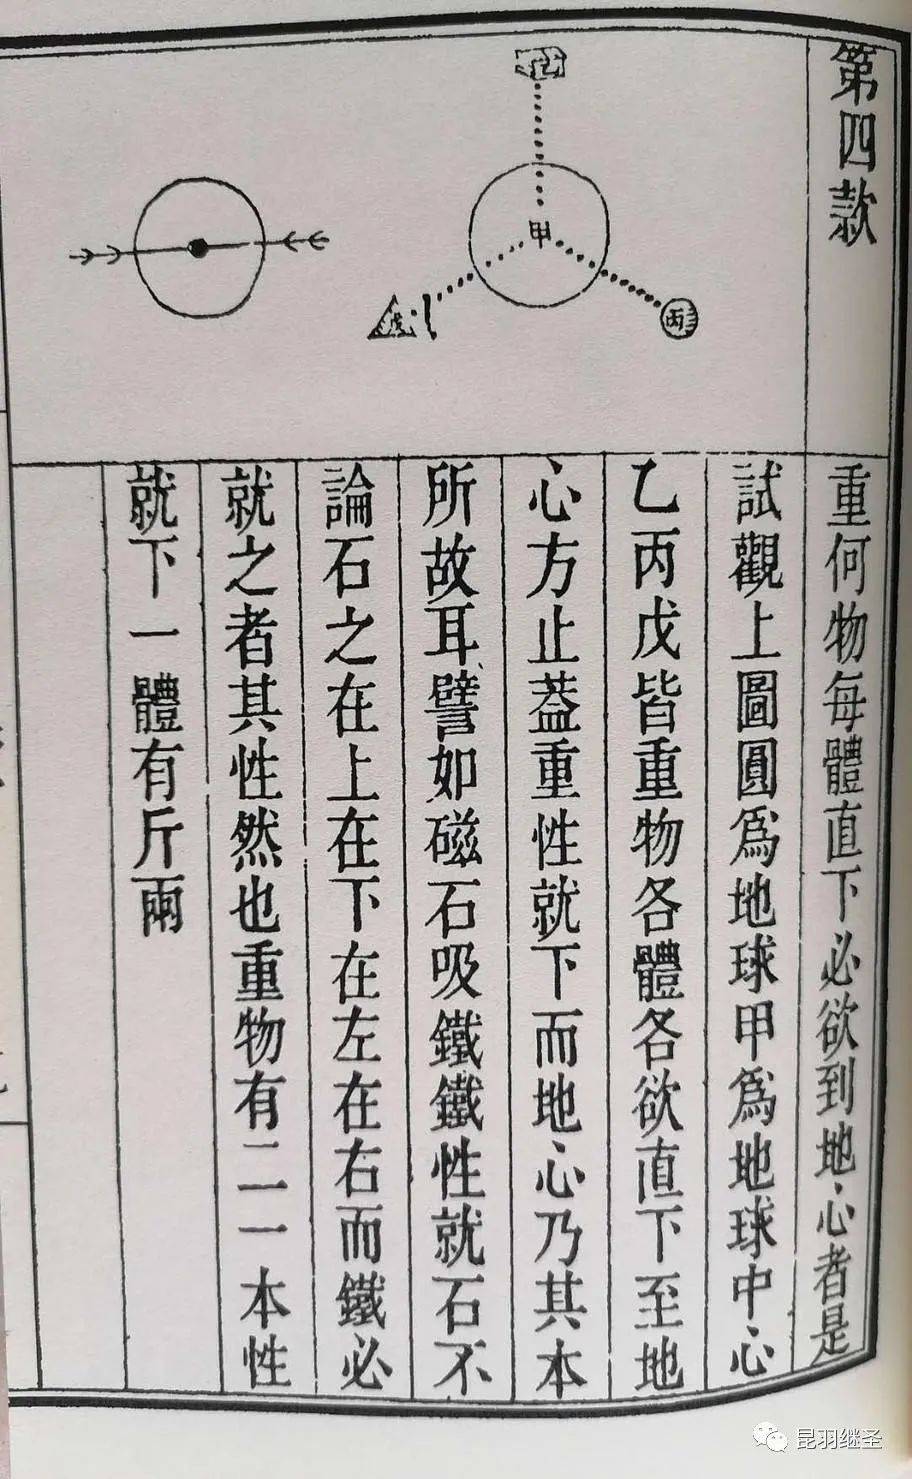 第四款
重何物每體直下必欲到地心者是
試觀上圖圓為地球甲為地球中心
乙丙戊皆重物各體各欲直下至地
心方止葢重性就下而地心乃其本
所故耳譬如磁石吸鐵鐵性就石不
論石之在上在下在左在右而鐵必
就之者其性然也重物有二一本性
就下一體有斤兩
甲
丙
戊
昆羽继圣